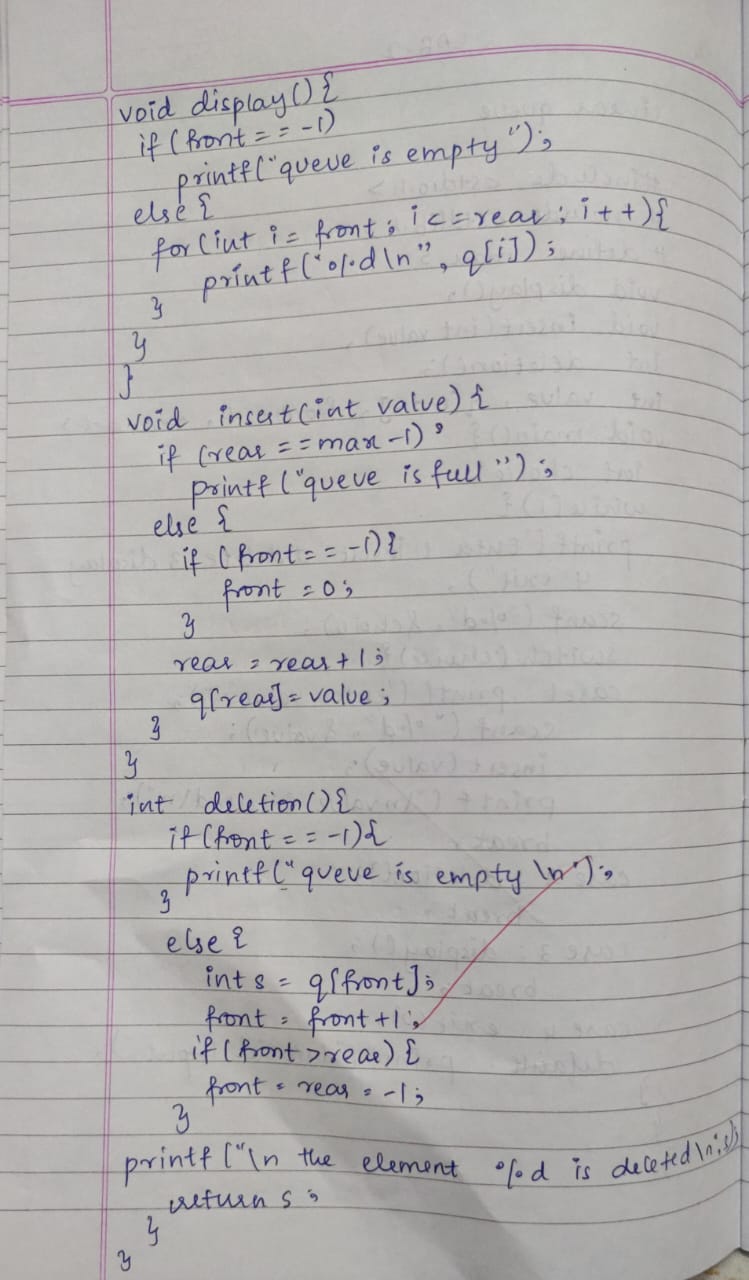 void display(){
if (front == -1)
printf("queue is empty");
else {
for(int i = front; i <= rear; i++){
printf("%d\n", q[i]);
}
}
}
void insert(int value) {
if (rear == max-1);
printf("queue is full");
else {
if (front == -1){
front = 0;
}
rear = rear+1;
q[rear] = value;
}
}
int deletion(){
if(front == -1){
printf("queue is empty \n");
}
else {
int s = q[front];
front = front+1;
if (front > rear) {
front = rear = -1;
}
printf("\n the element %d is deleted\n",s);
return s;
}
}